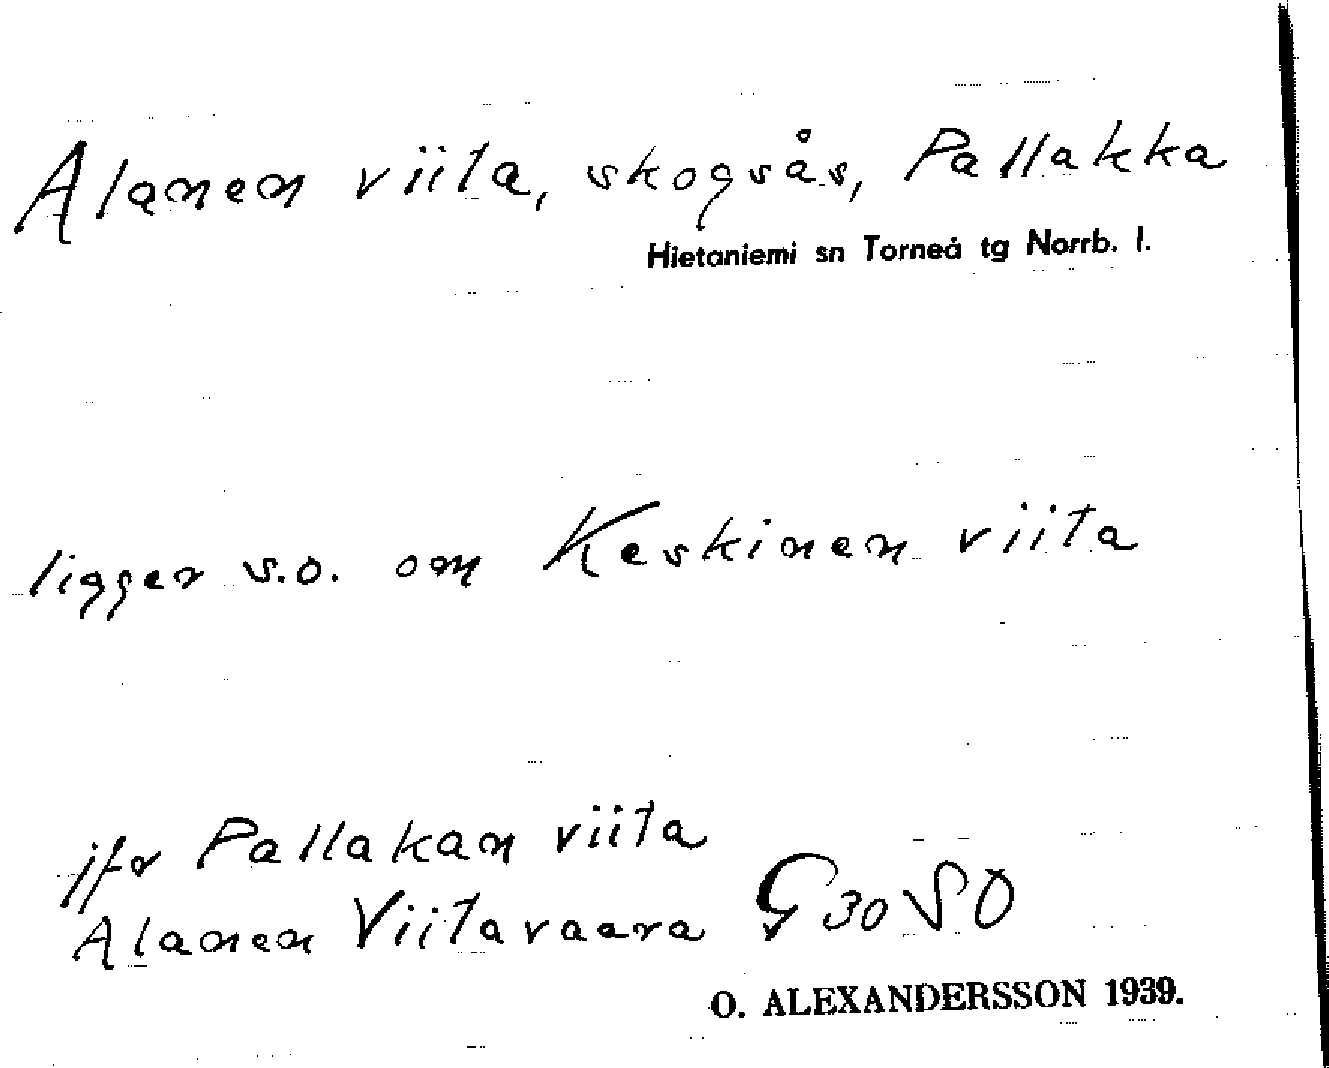 Alanen viita, skogsås, Pallakka
Hietaniemi sn Torneå tg Norrb. l.
ligger s.o. om Keskinen viita
jfr Pallakan viita
Alanen Viitavaara G 30 SO
O. ALEXANDERSSON 1939.